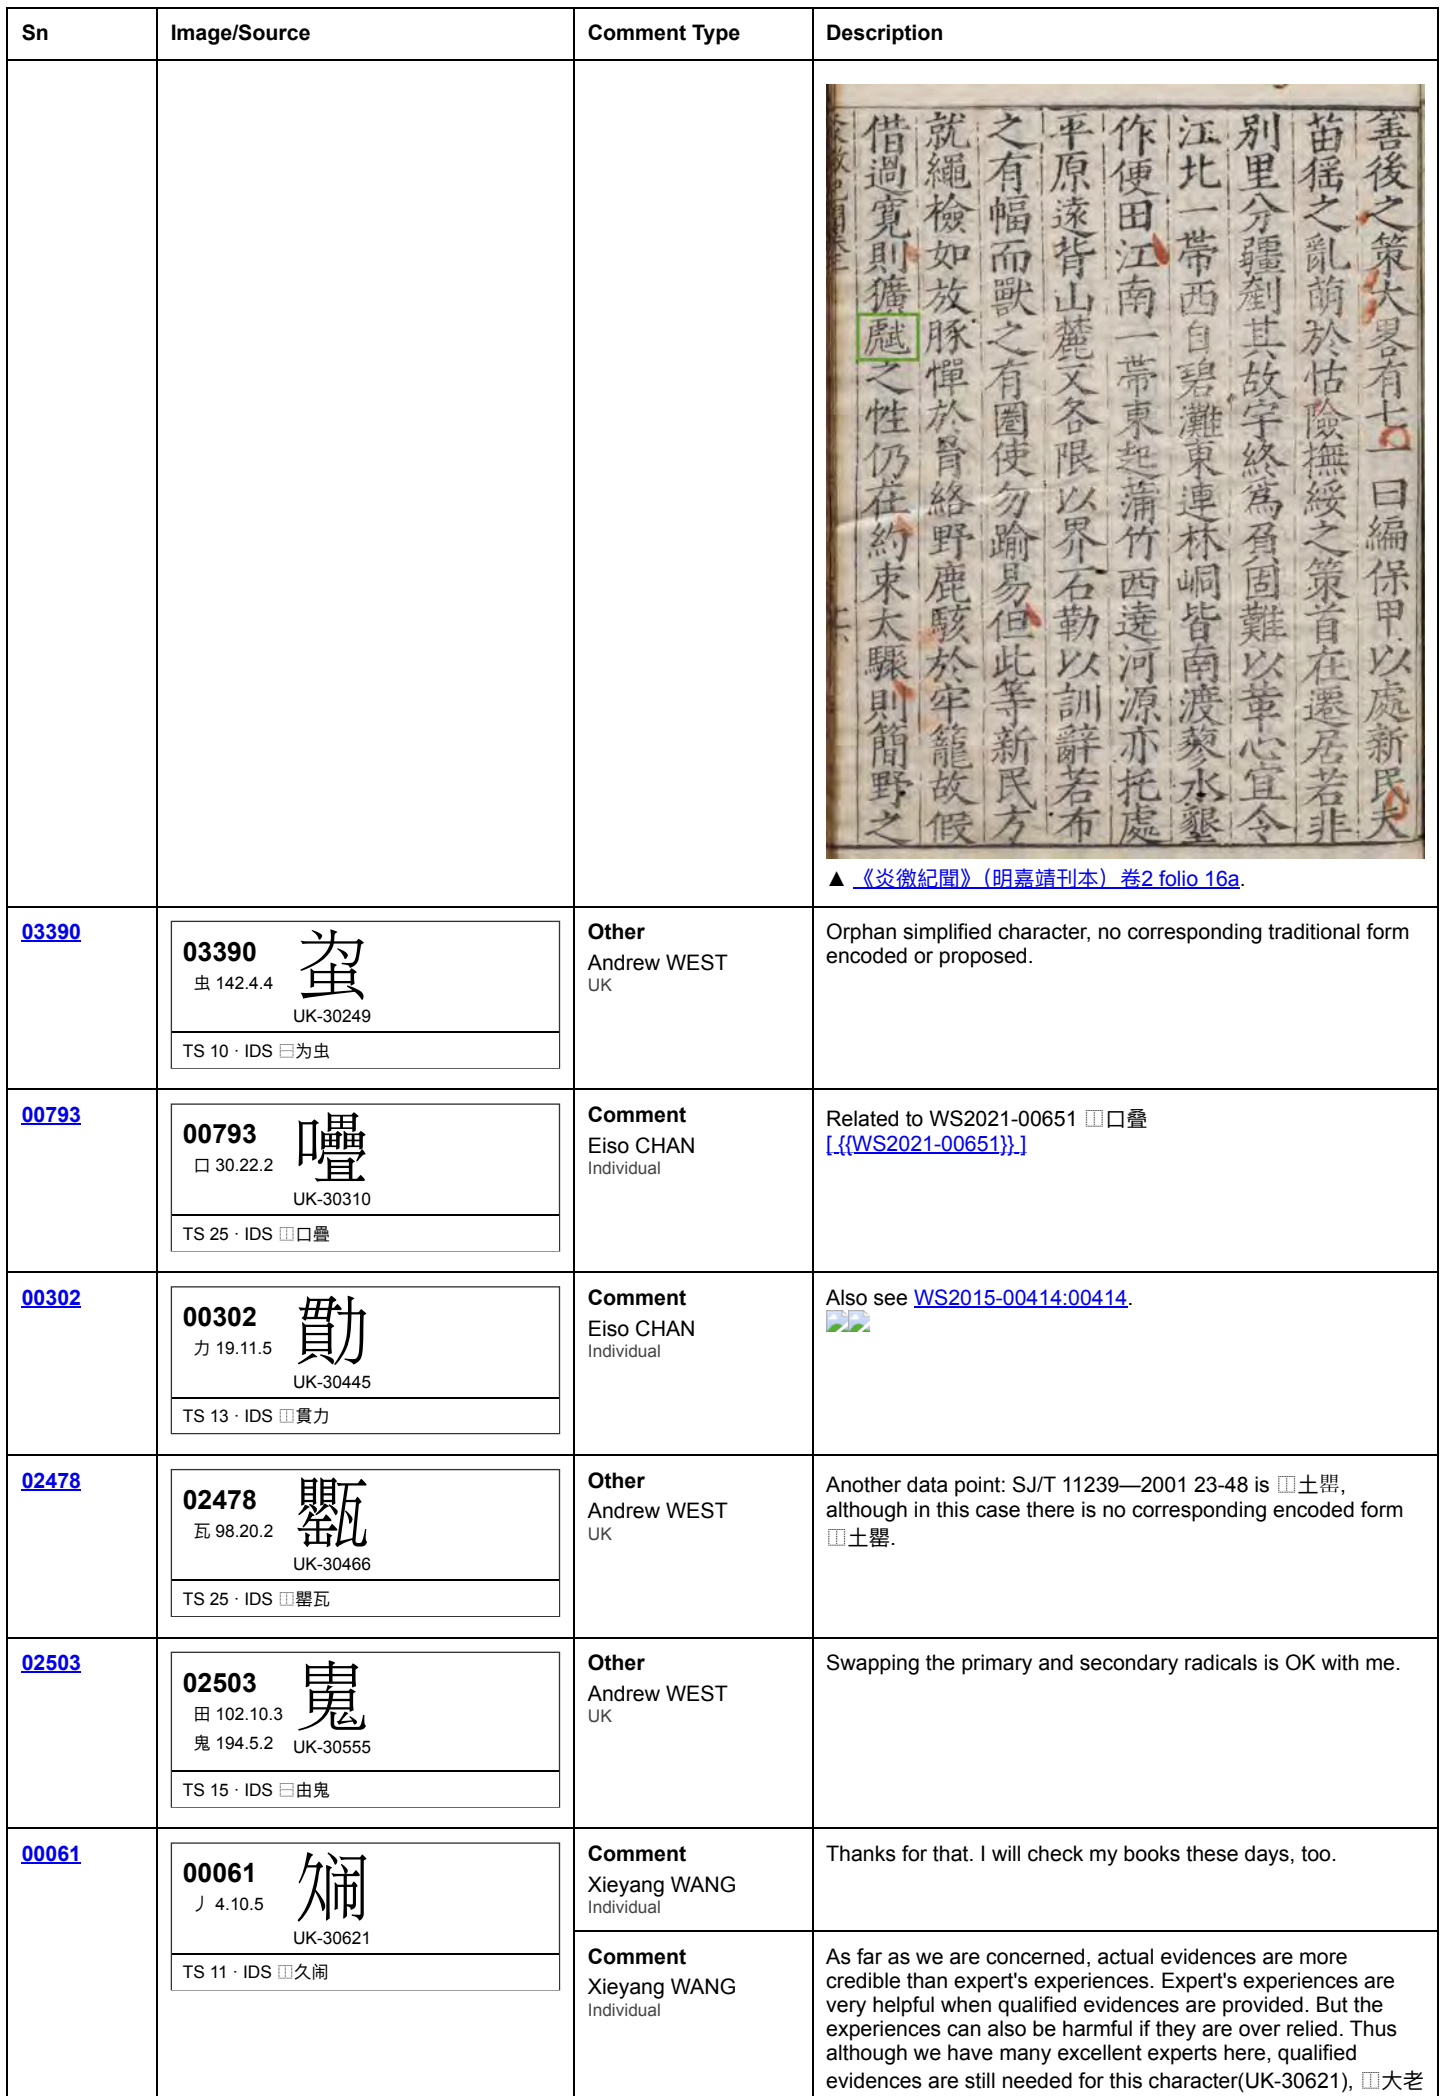 Sn Image/Source Comment Type Description
善後之策大畧有七一曰編保甲以處新民夫
苗猺之亂萌於怙險撫綏之策首在遷居若非
別里分疆剷其故宇終爲負固難以革心宜令
江北一帶西自碧灘東連林峒皆南渡蓼水墾
作便田江南一帶東起蒲竹西遶河源亦托處
平原遠背山麓又各限以界石勒以訓辭若布
之有幅而獸之有圈使勿踰易但此等新民方
就繩檢如放豚憚於䏍絡野鹿駭於牢籠故假
借過寬則獷之性仍在約束太驟則簡野之
▲ 《炎徼紀聞》（明嘉靖刊本）卷2 folio 16a.
03390
03390
虫 142.4.4
UK-30249
TS 10 · IDS ⿱为虫
Other
Andrew WEST
UK
Orphan simplified character, no corresponding traditional form
encoded or proposed.
00793
00793
口 30.22.2
UK-30310
TS 25 · IDS ⿰口疊
Comment
Eiso CHAN
Individual
Related to WS2021-00651 ⿰口叠
[ {{WS2021-00651}} ]
00302
00302
力 19.11.5
UK-30445
TS 13 · IDS ⿰貫力
Comment
Eiso CHAN
Individual
Also see WS2015-00414:00414.
02478
02478
瓦 98.20.2
UK-30466
TS 25 · IDS ⿰罌瓦
Other
Andrew WEST
UK
Another data point: SJ/T 11239—2001 23-48 is ⿰土罂,
although in this case there is no corresponding encoded form
⿰土罌.
02503
02503
田 102.10.3
鬼 194.5.2
UK-30555
TS 15 · IDS ⿱由鬼
Other
Andrew WEST
UK
Swapping the primary and secondary radicals is OK with me.
00061
00061
丿 4.10.5
UK-30621
TS 11 · IDS ⿰久闹
Comment
Xieyang WANG
Individual
Thanks for that. I will check my books these days, too.
Comment
Xieyang WANG
Individual
As far as we are concerned, actual evidences are more
credible than expert's experiences. Expert's experiences are
very helpful when qualified evidences are provided. But the
experiences can also be harmful if they are over relied. Thus
although we have many excellent experts here, qualified
evidences are still needed for this character(UK-30621), ⿰大老